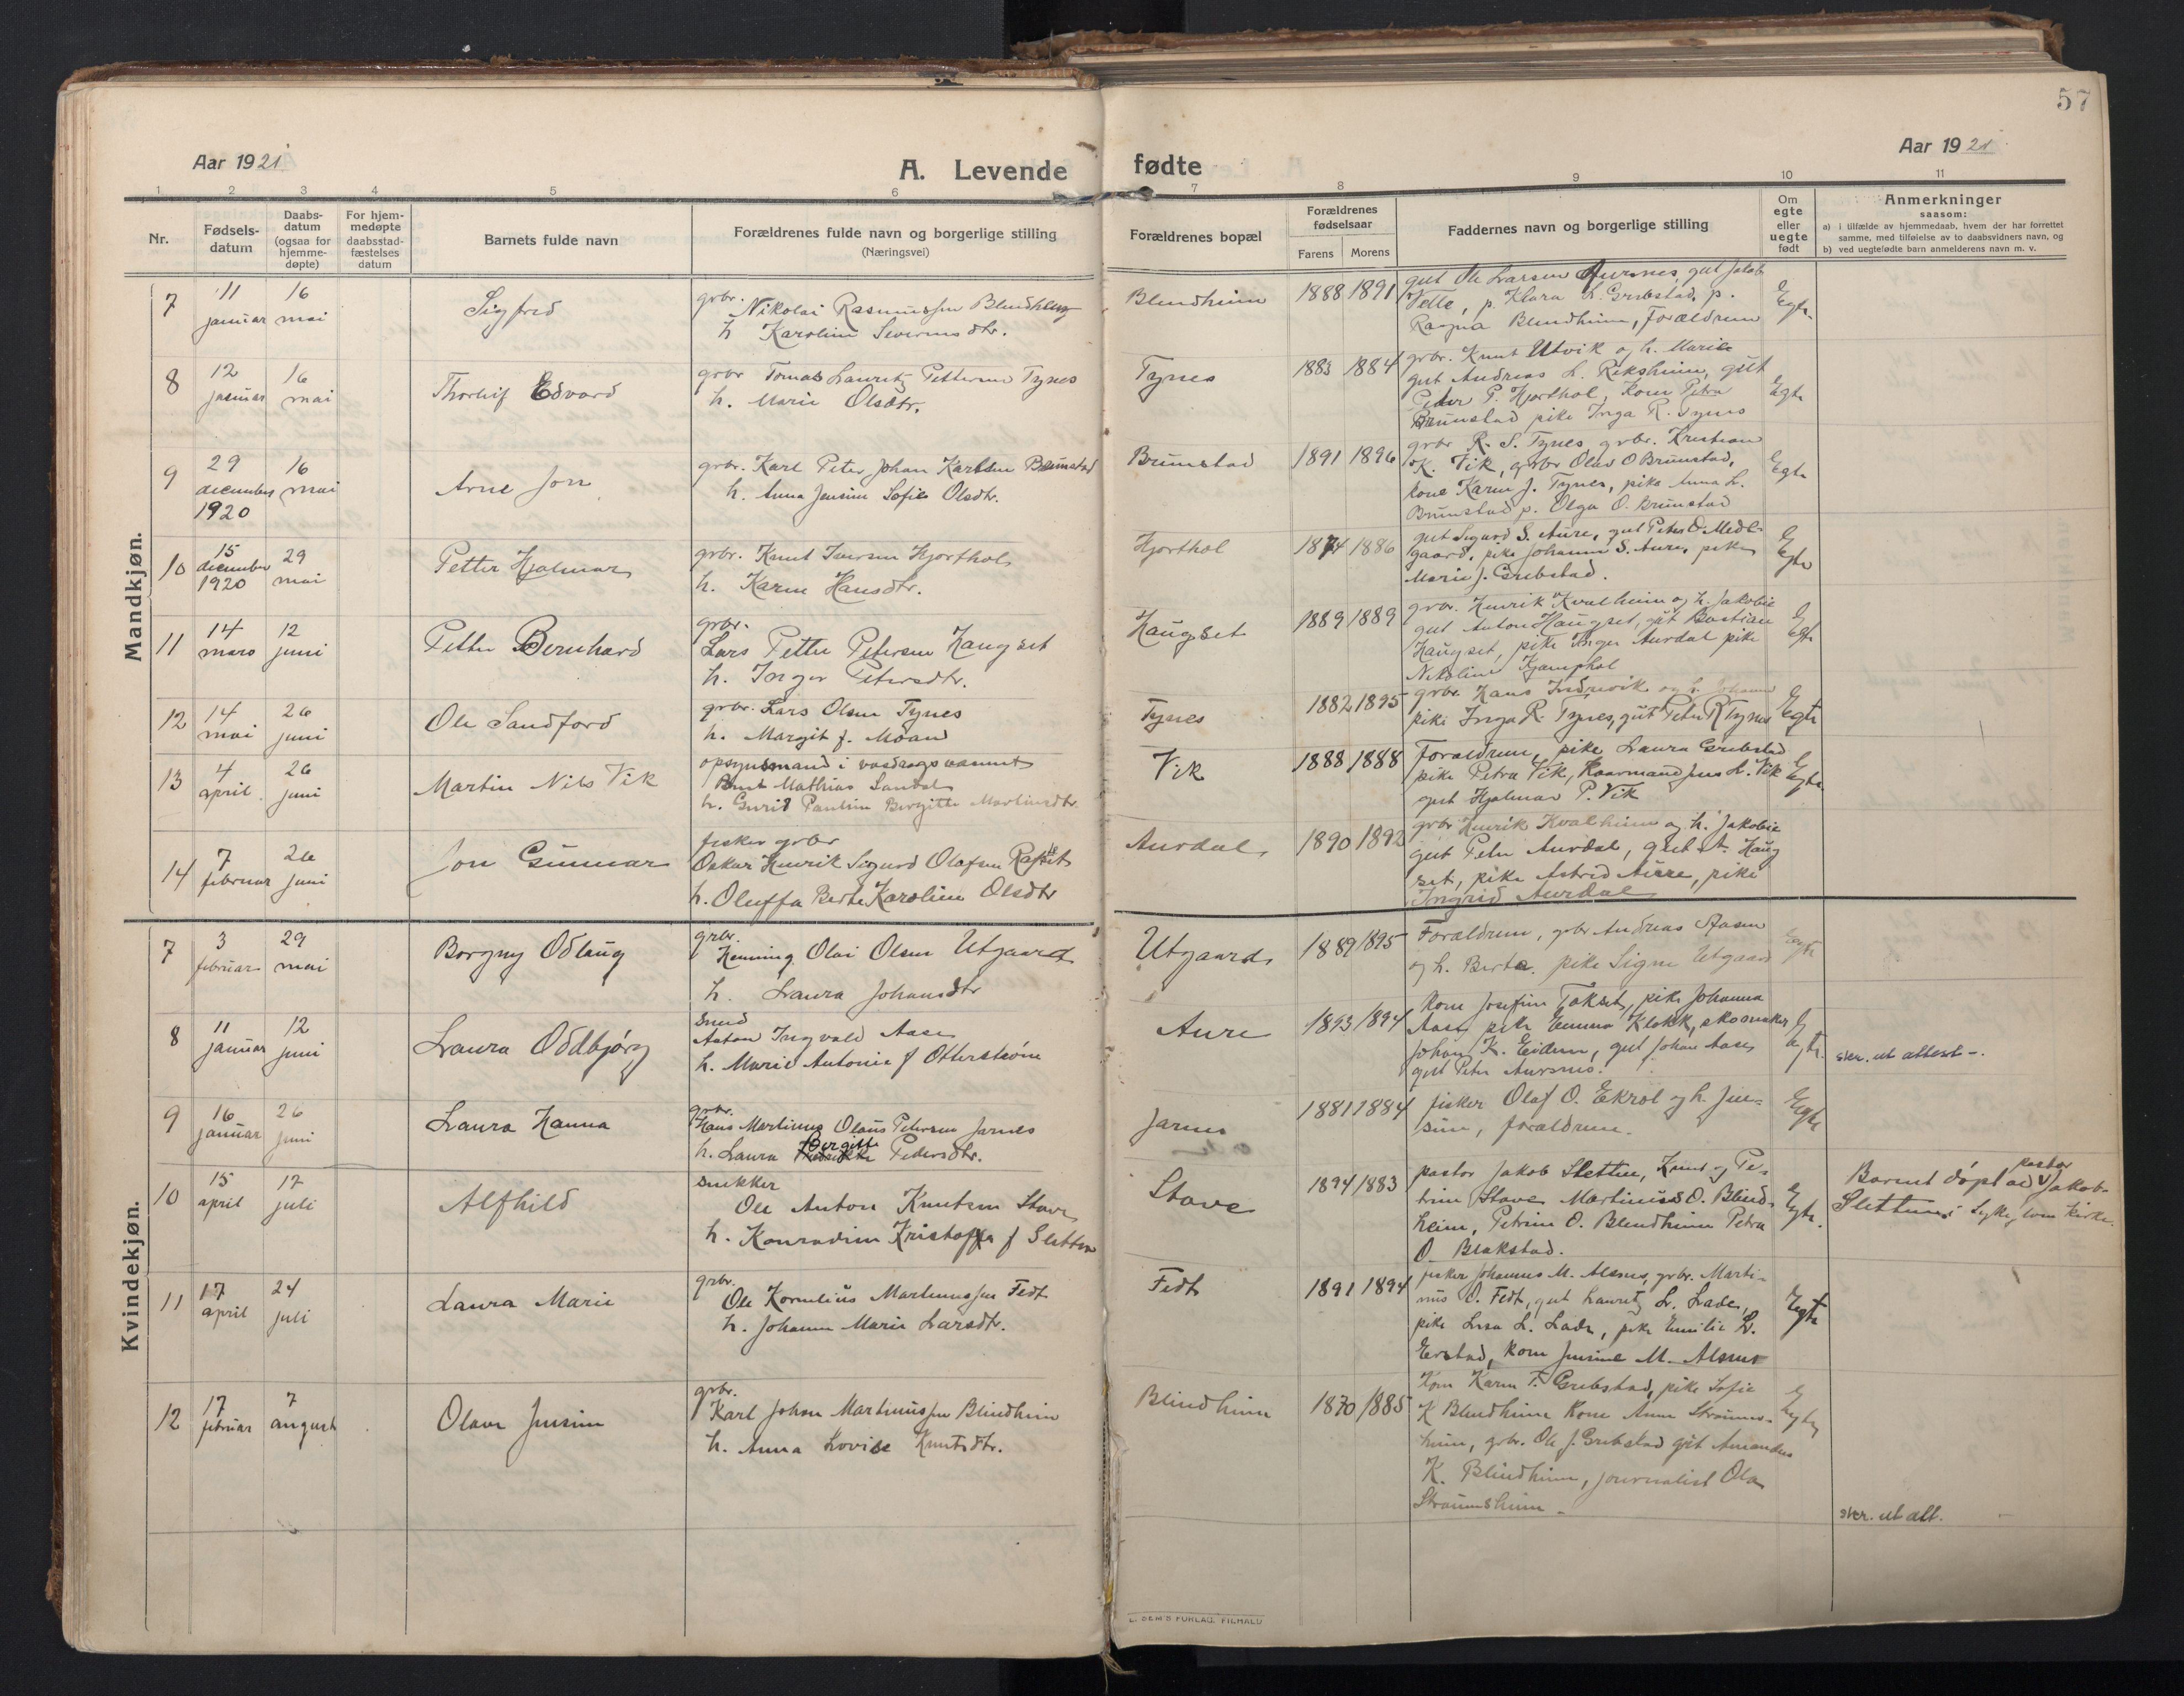 57
Aar 1921
A. Levende fødte
Aar 1921
1 2 3 4 5 6 7 8 9 10 11
Nr.
Fødsels-
datum
Daabs-
datum
(ogsaa for
hjemme-
døpte)
For hjem-
medøpte
daabsstad-
fæstelses
datum
Barnets fulde navn
Forældrenes fulde navn og borgerlige stilling
(Næringsvei)
Forældrenes bopæl
Forældrenes
fødselsaar
Farens Morens
Faddernes navn og borgerlige stilling
Om
egte
eller
uegte
født
Anmerkninger
saasom:
a) i tilfælde av hjemmedaab, hvem der har forrettet
samme, med tilføielse av to daabsvidners navn, og
b) ved uegtefødte barn anmelderens navn m. v.
Mandkjøn.
7 11 januar 16 mai Sigfred
grbr. Nikolai Rasmussen Blindheim
h Karoline Severinsdtr.
Blindheim 1888 1891
gut Ole Larsen Aursnes, gut Jakob
Velle, p. Klara L. Grebstad, p.
Ragna Blindheim, Forældrene
Egte
8 12 januar 16 mai Thorleif Edvard
grbr Tomas Lauritz Pettersen Tynes
h. Marie Olsdtr.
Tynes 1883 1884
grbr. Knut Utvik og h. Marie
gut Andreas L. Reksheim, gut
Peder P. Hjorthol, Kone Petra
Brunstad pike Inga R. Tynes
Egte
9 29 december 1920 16 mai Arne Jon
grbr. Karl Peter Johan Karlsen Brunstad
h. Anna Jensine Sofie Olsdtr.
Brunstad 1891 1896
grbr R. S. Tynes, grbr. Kristian
K. Vik, grbr Olav O Brunstad,
kone Karen J. Tynes, pike Anna L.
Brunstad p. Olga O. Brunstad
Egte
10 15 december 1920 29 mai Petter Hjalmar
grbr. Knut Iversen Hjorthol
h. Karen Hansdtr.
Hjorthol 1874 1886
gut Sigurd S. Aure, gut Peter O. Medl-
gaard, pike Johanne S. Aure, pike
Marie J. Grebstad.
Egte
11 14 mars 12 juni Petter Bernhard
grbr.
Lars Petter Petersen Haugset
h. Inger Petersdtr.
Haugset 1889 1889
grbr. Henrik Kvalheim og h. Jakobie
gut Anton Haugset, gut Bastian
Haugset, pike Inger Aurdal pike
Nikoline Kjemphol
Egte
12 14 mai 26 juni Ole Sandford
grbr. Lars Olsen Tynes
h. Margit f. Moan
Tynes 1882 1895
grbr. Hans Indrevik og h. Johanne
pike Inga R. Tynes, gut Peter R Tynes
Egte
13 4 april 26 juni Martin Nils Vik
opsynsmand i vasdragsvæsenet
Bernt Mathias Sandal
h. Gurid Pauline Bergitte Martinsdtr.
Vik 1888 1888
Forældrene, pike Laura Grebstad
pike Petra Vik, Kaarmand Jens L. Vik
gut Hjalmar P. Vik
Egte
14 7 februar 26 juni Jon Gunnar
fisker grbr
Oskar Henrik Sigurd Olafsen Rafset
h. Oluffa Berte Karoline Olsdtr
Aurdal 1890 1892
grbr Henrik Kvalheim og h. Jakobie
gut Peter Aurdal, gut A. Haug
set, pike Astrid Aure, pike
Ingrid Aurdal
Kvindekjøn.
7 3 februar 29 mai Borgny Odlaug
grbr.
Henning Olai Olsen Utgaard
h. Laura Johansdtr
Utgaard 1889 1895
Forældrene, grbr Andreas Aasen
og h. Berta. pike Signe Utgaard
Egte
8 11 januar 12 juni Laura Oddbjørg
smed
Anton Ingvald Aase
h. Marie Antonie f Otterstrøm
Aure 1893 1894
Kone Josefine Takset, pike Johanna
Aase, pike Emma Klokk, skomaker
Johan K. Eidem, gut Johan Aase
gut Peter Aursnes.
Egte. skr. ut attest.
9 16 januar 26 juni Laura Hanna
grbr.
Hans Martinus Olaus Petersen Jarnes
h. Laura Bergitte Pedersdtr.
Jarnes 1881 1884
fisker Olaf O. Ekrol og h. Jen-
sine, forældrene.
Egte
10 15 april 17 juli Alfhild
snekker
Ole Anton Knutsen Stave
h. Konradine Kristoffa f Sletten
Stave 1894 1883
pastor Jakob Sletten, Knut og Pe-
trine Stave Martinus O. Blind-
heim, Petrine O. Blindheim Petra
O. Blakstad.
Egte.
Barnet døpt av pastor Jakob
Sletten i Sykkylven kirke.
11 17 april 24 juli Laura Marie
grbr.
Ole Kornelius Martinussen Fedt
h. Johanne Marie Larsdtr.
Fedt 1891 1894
fisker Johannes M. Alsnes, grbr. Marti-
nus O. Fedt, gut Lauritz L. Lade,
pike Lisa L. Lade, pike Emilie L.
Erstad, kone Jensine M. Alsnes
Egte
12 17 februar 7 august Olave Jensine
grbr.
Karl Johan Martinussen Blindheim
h. Anna Lovise Knutsdtr.
Blindheim 1870 1885
Kone Karen T. Grebstad, pike Sofie
K Blindheim Kone Anne Straums-
heim, grbr. Ole J. Grebstad gut Amandus
K. Blindheim, journalist Ola
Straumsheim
Egte
skr. ut att.
E. SEM'S FORLAG. FILHALD